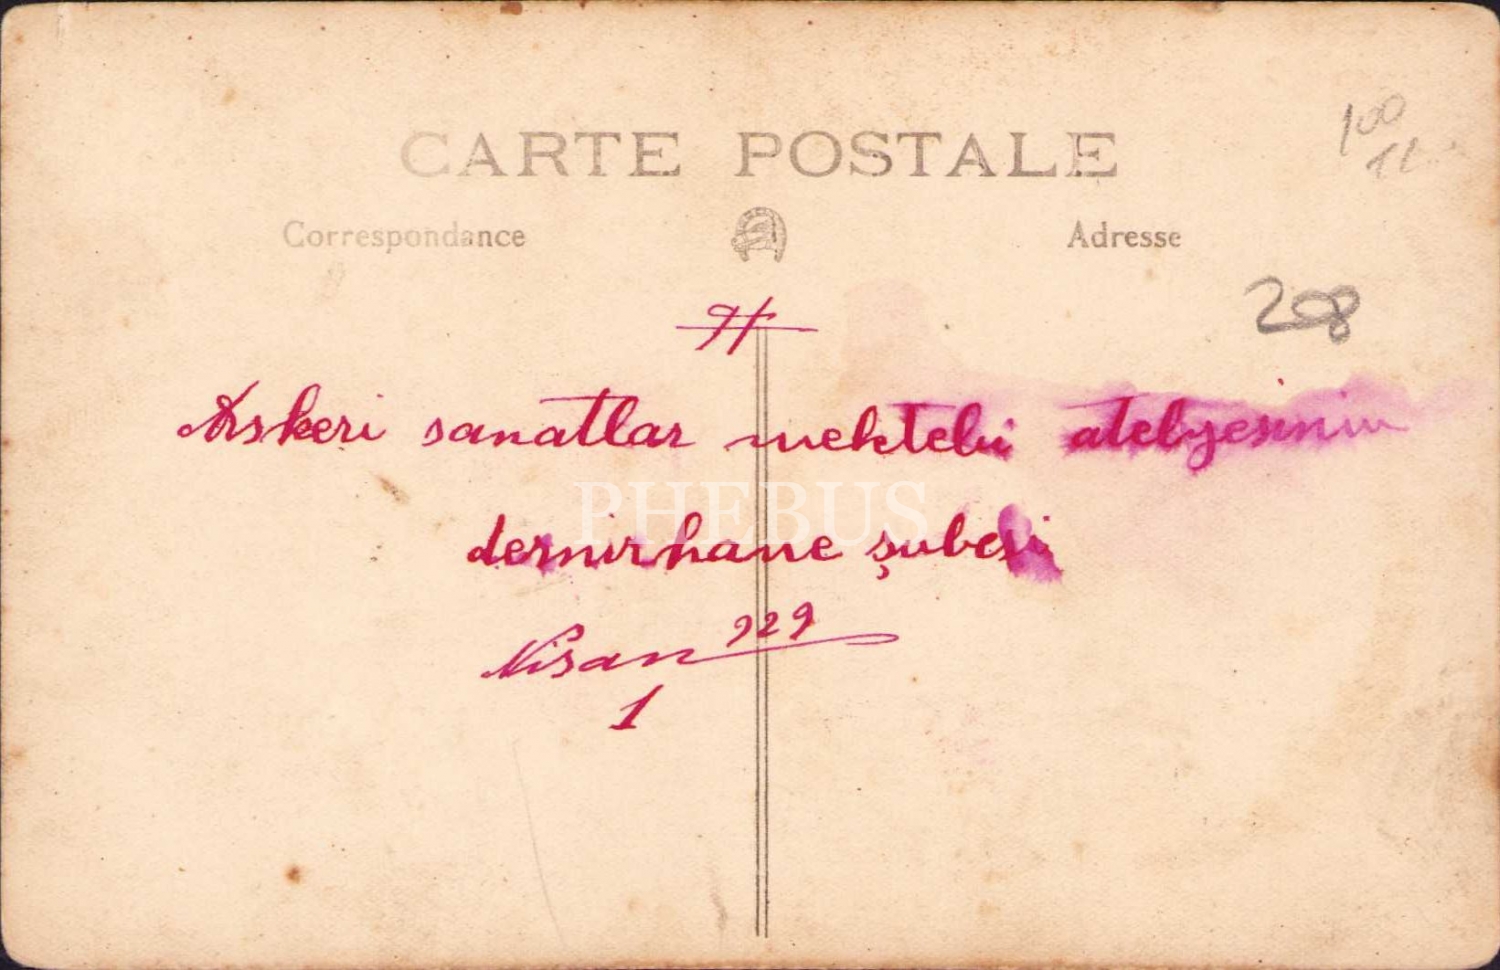 CARTE POSTALE
100
Correspondance
Adresse
208
Askeri sanatlar mektebi atelyesinin
PHEBUS
demirhane şubesi
Nisan 929
1